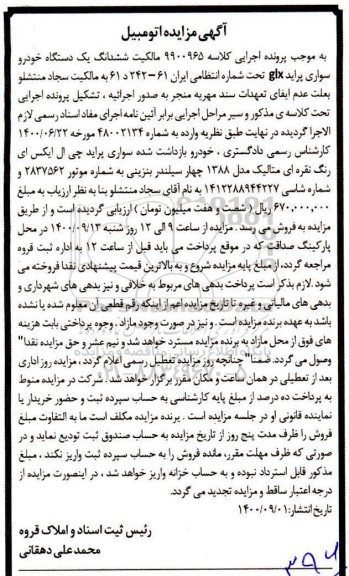 آگهی مزایده اتومبیل
به موجب پرونده اجرایی کلاسه ۹۹۰۰۹۶۵ مالکیت ششدانگ یک دستگاه خودرو
سواری پراید glx تحت شماره انتظامی ایران ۶۱-۲۴۲د۶۱ به مالکیت سجاد منتشلو
بعلت عدم ایفای تعهدات سند مهریه منجر به صدور اجرائیه ، تشکیل پرونده اجرایی
تحت کلاسه ی مذکور و سیر مراحل اجرایی برابر آئین نامه اجرای مفاد اسناد رسمی لازم
الاجرا گردیده در نهایت طبق نظریه وارده به شماره ۴۸۰۰۲۱۳۴ مورخه ۱۴۰۰/۰۶/۲۲
کارشناس رسمی دادگستری ، خودرو بازداشت شده سواری پراید چی ال ایکس ای
رنگ نقره ای متالیک مدل ۱۳۸۸ چهار سیلندر بنزینی به شماره موتور ۲۸۳۷۵۶۲ و
شماره شاسی ۱۴۱۲۲۸۸۹۴۴۲۲۷ به نام آقای سجاد منتشلو بنا به نظر ارزیاب به مبلغ
۶۷۰,۰۰۰,۰۰۰ ریال ( شصت و هفت میلیون تومان ) ارزیابی گردیده است و از طریق
مزایده به فروش می رسد . مزایده از ساعت ۹ الی ۱۲ روز شنبه ۱۴۰۰/۰۹/۱۳ در محل
پارکینگ صداقت که در موقع پرداخت می باید قبل از ساعت ۱۲ به اداره ثبت قروه
مراجعه گردد، از مبلغ پایه مزایده شروع و به بالاترین قیمت پیشنهادی نقدا فروخته می
شود. لازم بذکر است پرداخت بدهی های مربوط به خلافی و نیز بدهی های شهرداری و
بدهی های مالیاتی و غیره تا تاریخ مزایده اعم از اینکه رقم قطعی آن معلوم شده یا نشده
باشد به عهده برنده مزایده است . و نیز در صورت وجود مازاد ، وجوه پرداختی بابت هزینه
های فوق از محل مازاد به برنده مزایده مسترد خواهد شد و نیم عشر و حق مزایده نقدا"
وصول می گردد. ضمنا" چنانچه روز مزایده تعطیل رسمی اعلام گردد ، مزایده روز اداری
بعد از تعطیلی در همان ساعت و مکان مقرر برگزار خواهد شد . شرکت در مزایده منوط
به پرداخت ده درصد از مبلغ پایه کارشناسی به حساب سپرده ثبت و حضور خریدار یا
نماینده قانونی او در جلسه مزایده است . برنده مزایده مکلف است ما به التفاوت مبلغ
فروش را ظرف مدت پنج روز از تاریخ مزایده به حساب صندوق ثبت تودیع نماید و در
صورتی که ظرف مهلت مقرر، مانده فروش را به حساب سپرده ثبت واریز نکند ، مبلغ
مذکور قابل استرداد نبوده و به حساب خزانه واریز خواهد شد ، در اینصورت مزایده از
درجه اعتبار ساقط و مزایده تجدید می گردد.
تاریخ انتشار: ۱۴۰۰/۰۹/۰۱
رئیس ثبت اسناد و املاک قروه
محمدعلی دهقانی